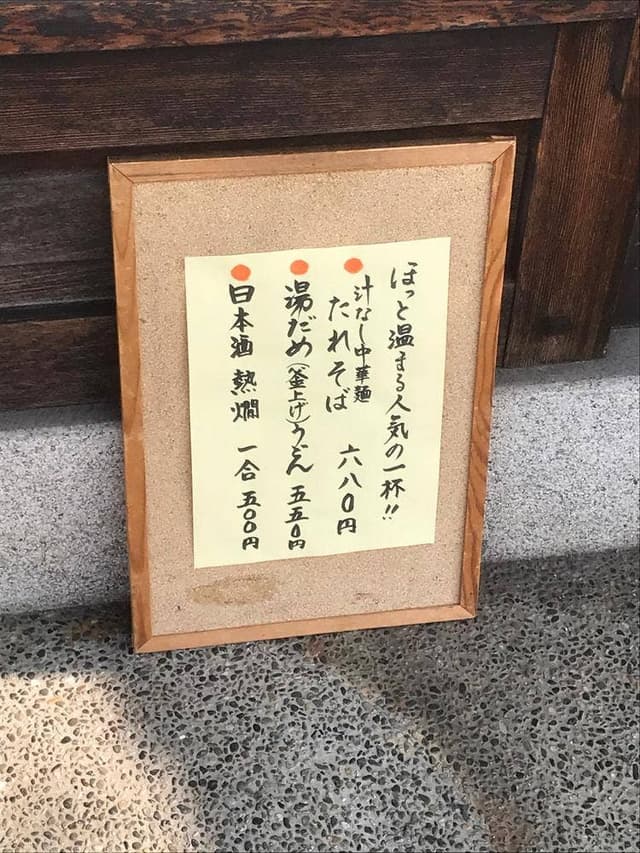 ほっと温まる人気の一杯!!
汁なし中華麺
たれそば 六八〇円
湯だめ(釜上げ)うどん 五五〇円
日本酒 熱燗 一合 五〇〇円